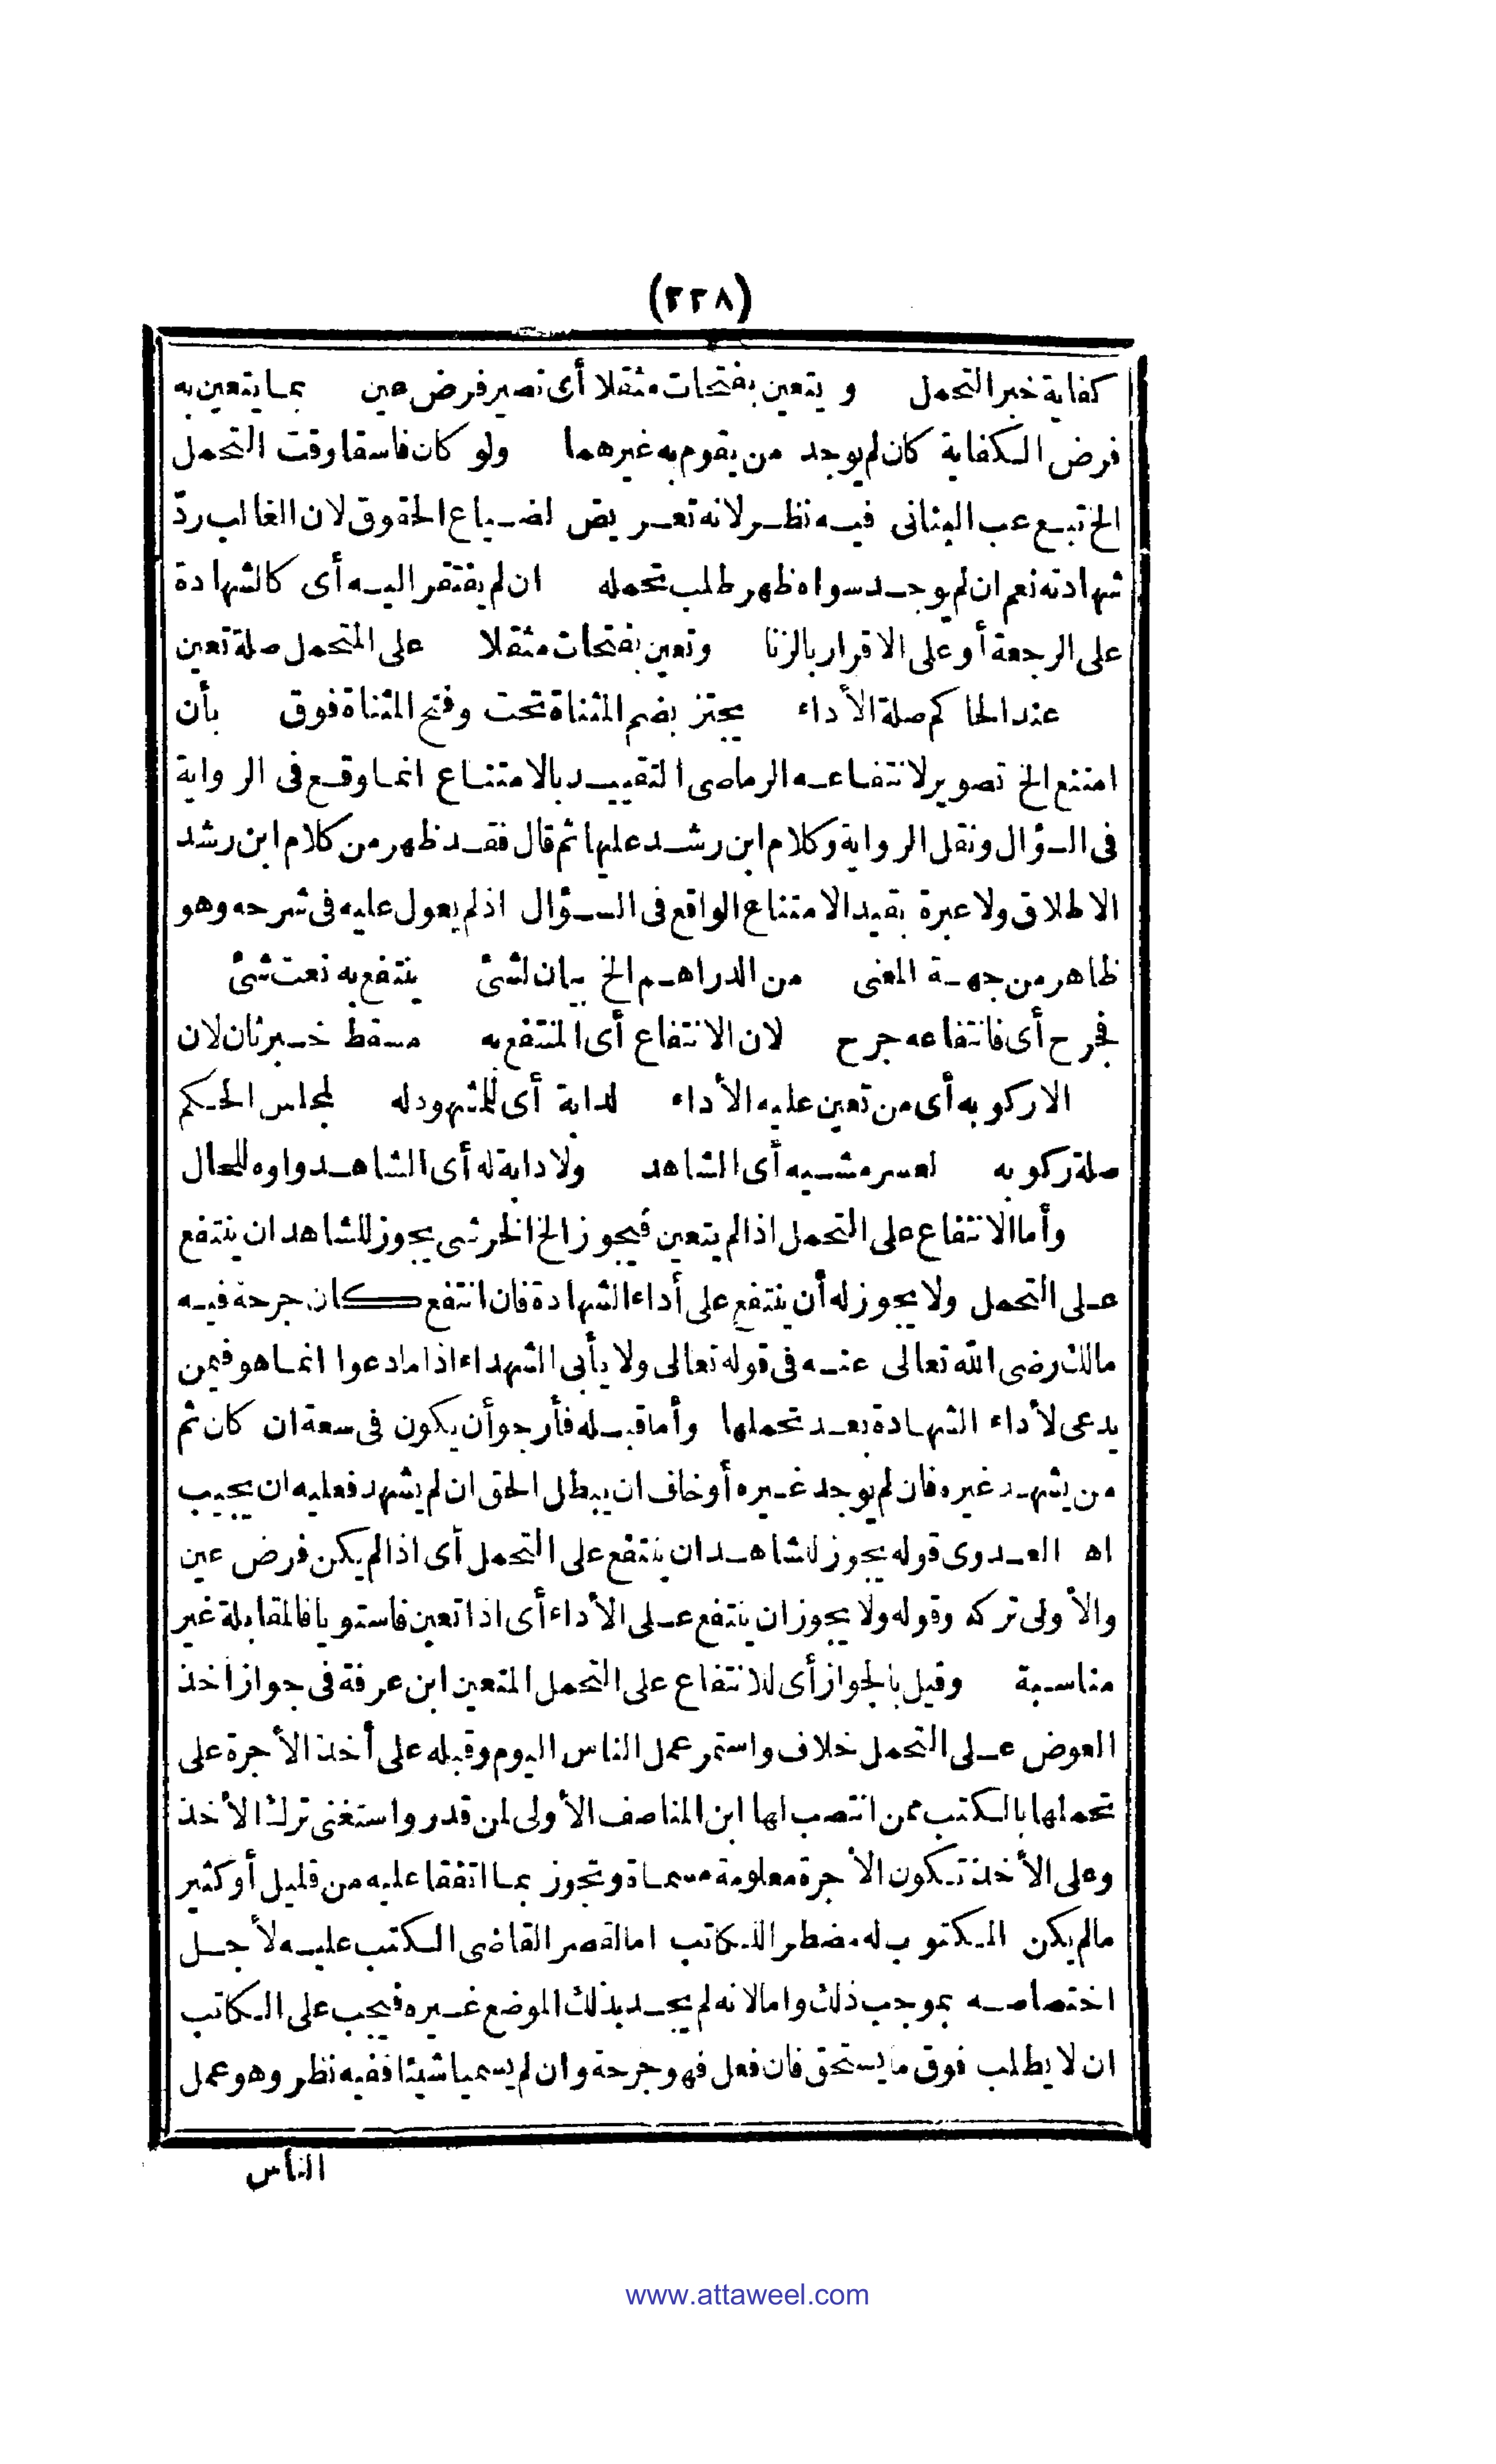 (٢٢٨)
كفاية خبر التحمل و يتعين بفتحات مثقلا أى تصير فرض عين بما يتعين به
فرض الكفاية كان لم يوجد من يقوم به غيرهما ولو كان فاسقا وقت التحمل
الخ تبع عب البنانى فيه نظر لانه تعريض لضياع الحقوق لان الغالب ردّ
شهادته نعم ان لم يوجد سواه ظهر طلب تحمله ان لم يفتقر اليه أى كالشهادة
على الرجعة أو على الاقرار بالزنا وتعين بفتحات مثقلا على المتحمل صلة تعين
عند الحاكم صلة الأداء يجتز بضم المثناة تحت وفتح المثناة فوق بأن
امتنع الخ تصوير لانتفاعه الرماصى التقييد بالامتناع انما وقع فى الرواية
فى السؤال ونقل الرواية وكلام ابن رشد عليها ثم قال فقد ظهر من كلام ابن رشد
الاطلاق ولا عبرة بقيد الامتناع الواقع فى السؤال اذ لم يعول عليه فى شرحه وهو
ظاهر من جهة المعنى من الدراهم الخ بيان لشئ ينتفع به نعت شئ
فجرح أى فانتفاعه جرح لان الانتفاع أى المنتفع به مسقط خبر ثان لان
الا ركوبه أى من تعين عليه الأداء لدابة أى للمشهود له لمجلس الحكم
صلة ركوبه لعسر مشيه أى الشاهد ولا دابة له أى الشاهد واوه للحال
وأما الانتفاع على التحمل اذا لم يتعين فيجوز الخ الخرشى يجوز للشاهد ان ينتفع
على التحمل ولا يجوز له أن ينتفع على أداء الشهادة فان انتفع كان جرحة فيه
مالك رضى الله تعالى عنه فى قوله تعالى ولا يأبى الشهداء اذا ما دعوا انما هو فيمن
يدعى لأداء الشهادة بعد تحملها وأما قبله فأرجو أن يكون فى سعة ان كان ثم
من يشهد غيره فان لم يوجد غيره أو خاف ان يبطل الحق ان لم يشهد فعليه ان يجيب
اه العدوى قوله يجوز للشاهد ان ينتفع على التحمل أى اذا لم يكن فرض عين
والأولى تركه وقوله ولا يجوز ان ينتفع على الأداء أى اذا تعين فاستويا فالمقابلة غير
مناسبة وقيل بالجواز أى للانتفاع على التحمل المتعين ابن عرفة فى جواز أخذ
العوض على التحمل خلاف واستمر عمل الناس اليوم وقبله على أخذ الأجرة على
تحملها بالكتب ممن انتصب لها ابن المناصف الأولى لمن قدر واستغنى ترك الأخذ
وعلى الأخذ تكون الأجرة معلومة مسماة وتجوز بما اتفقا عليه من قليل أو كثير
ما لم يكن المكتوب له مضطر اللكاتب اما لقصر القاضى الكتب عليه لأجل
اختصاصه بموجب ذلك واما لانه لم يجد بذلك الموضع غيره فيجب على الكاتب
ان لا يطلب فوق ما يستحق فان فعل فهو جرحة وان لم يسميا شيئا ففيه نظر وهو عمل
الناس
www.attaweel.com